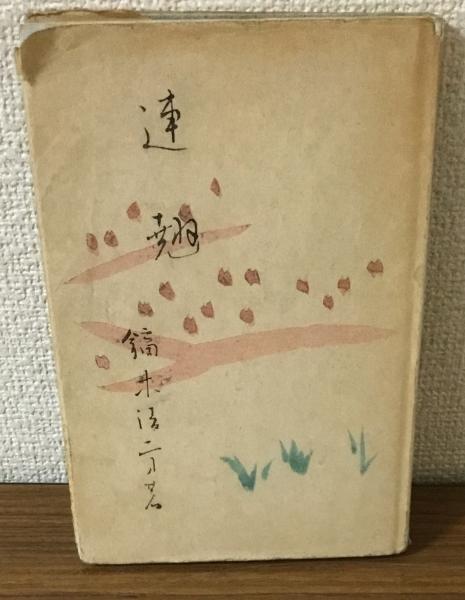 連翹
鏑木清方著